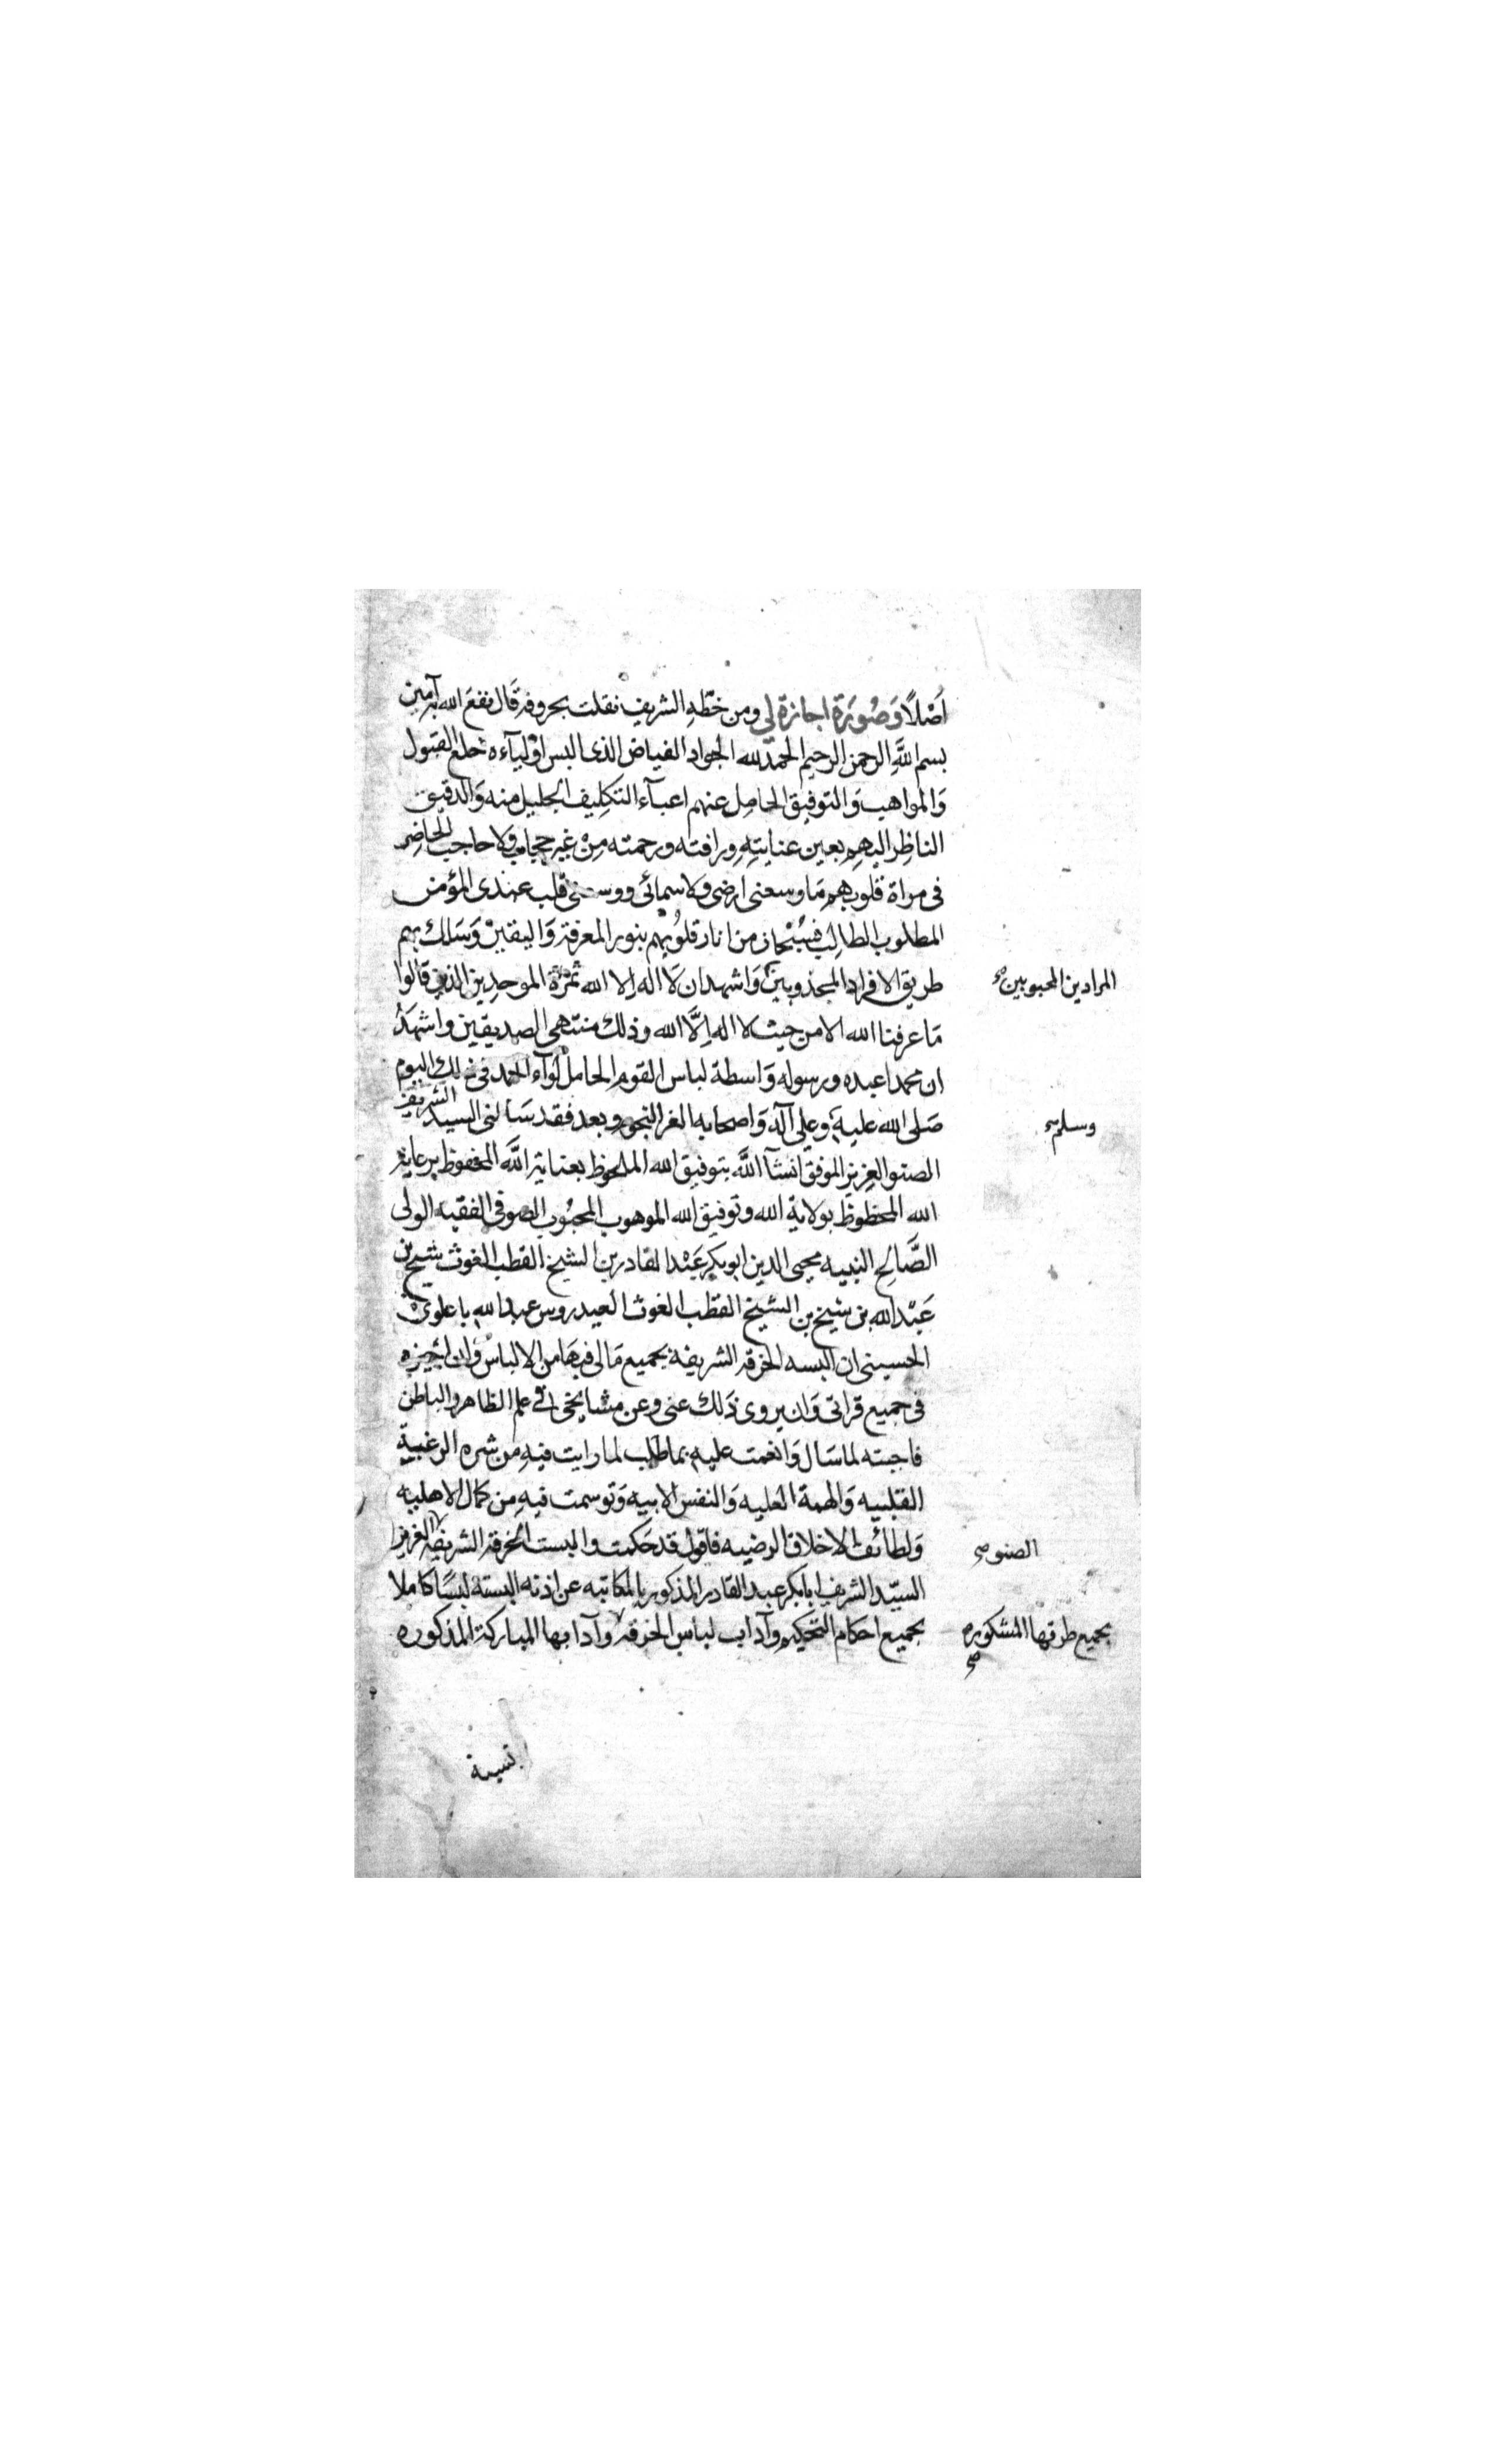 اَصْلاً وَصُورَة اجازة لي ومن خطّهِ الشريف نقلت بحروفه قَال نفعَ الله به آمين
بسم اللَّهِ الرحمن الرحيم الحمد لله الجواد الفياض الذى البس اوليآءه خلع القبول
وَالمواهب وَالتوفيق الحامِل عنهم اعبآء التكلِيف الجليل منه وَالدقيق
الناظِر اليهِم بعين عنايتِهِ ورافته ورحمته مِنْ غير حجاب ولا حاجب الحاضِر
فى مراة قلوبهم مَا وسعنى ارضى ولا سمائى ووسعنى قلب عبدى المؤمن
المطلوب الطالِب فسُبْحان من انار قلوُبهم بنور المعرفة وَاليقينْ وَسَلك بهم
طريق الافراد المجذوبين وَاشهد ان لَا اله اِلا الله ثمَرَة الموحدِين الذين قالوا
المرادين المحبوبين صح
مَا عرفنا الله الا من حيث لا اله اِلَّا الله وذلك منتهى الصديقين واشهَدُ
ان محمدا عبده ورسوله وَاسطة لباس القوم الحامل لوآء الحمد فى ذلك اليوم
صَلى الله عليهِ وعلى آله وَاصحابه الغر النجوم وبعد فقد سَالنى السيد الشريف
وسلم صح
الصنو العزيز الموفق انشآ اللَّه بتوفيق الله الملحوظ بعناية اللَّه المحفوظ برعاية
الله المحظوظ بولاية الله وتوفيق الله الموهوب المحبُوب الصوفى الفقيه الولى
الصَّالح النبيه محيى الدين ابو بكر عَبْد القادر بن الشيخ القطب الغوث شيخ بن
عَبْد الله بن شيخ بن الشيخ القطب الغوث العيدروس عبد الله باعلوى
الحسينى ان البسه الخرقه الشريفة بجميع مَا لى فيهَا من الالباس وَان اُجيزه
فى جميع قراتى وَان يروى ذَلك عنى وعن مشايخى فى علم الظاهر والباطن
فاجبته لما سَال وَانعمت عليه بما طلب لما رايت فيهِ من شره الرغبية
القلبيه وَالهمة العليه وَالنفس الابيه وَتوسمت فيهِ من كمال الاهليه
وَلطائف الاخلاق الرضيه فاقول قد حَكمت والبست الخرقه الشريفه العزيز
الصنو صح
السيّد الشريف ابا بكر عبد القادر المذكور بالمكاتبه عن اذنه البسته لبسًا كاملا
بجميع احكام التحكيم وآداب لباس الخرقه وآدابها المباركة المذكوره
بجميع طرقها المشكوره صح